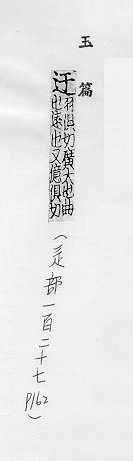 玉篇
迂
羽俱切廣大也曲
也遠也又憶俱切
(辵部一百二十七 P162)